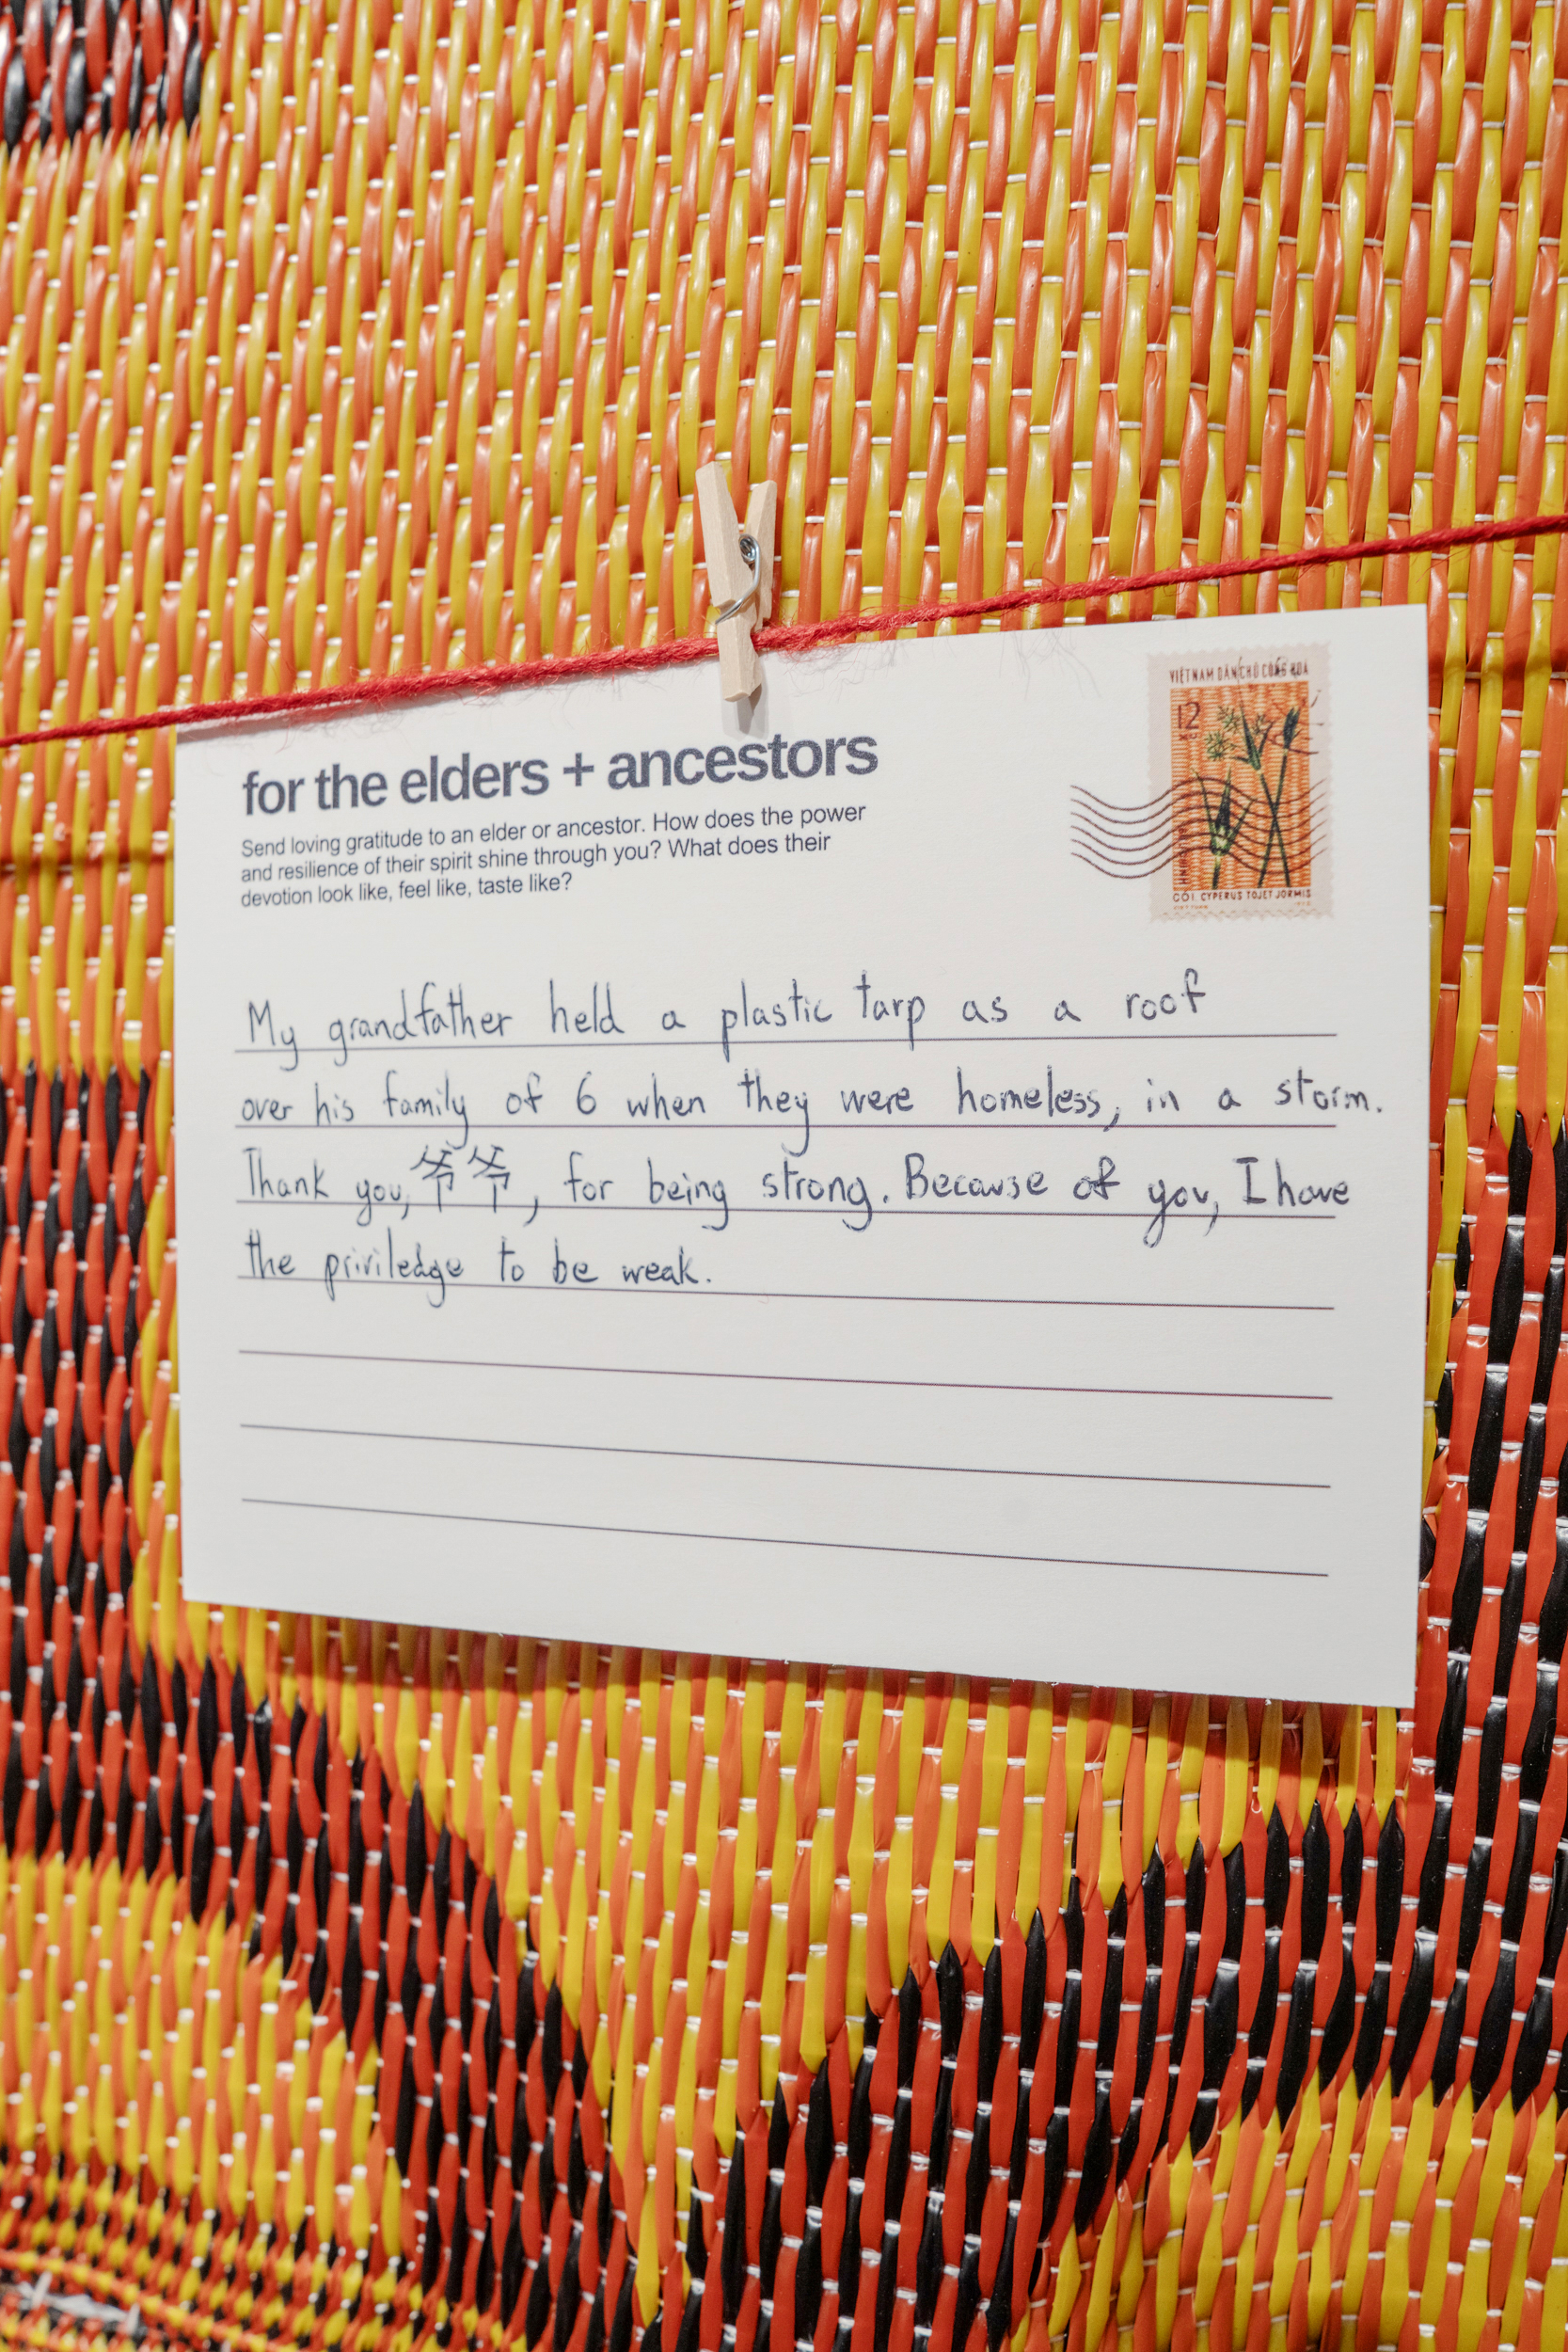 VIỆT NAM DÂN CHỦ CỘNG HOÀ
12
XU
BƯU CHÍNH
CÓI. CYPERUS TOJET JORMIS
for the elders + ancestors
Send loving gratitude to an elder or ancestor. How does the power
and resilience of their spirit shine through you? What does their
devotion look like, feel like, taste like?
My grandfather held a plastic tarp as a roof
over his family of 6 when they were homeless, in a storm.
Thank you, 爷爷, for being strong. Because of you, I have
the priviledge to be weak.